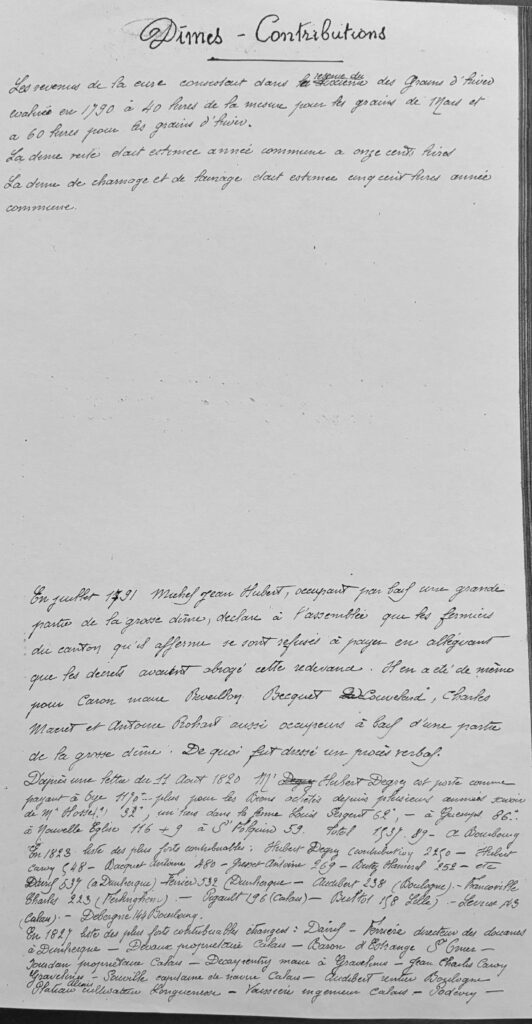 Dîmes - Contributions
Les revenus de la cure consistait dans le revenu du sixième des Grains d'hiver
évaluée en 1790 à 40 livres de la mesure pour les grains de Mars et
à 60 livres pour les grains d'hiver.
La dîme verte était estimée année commune à onze cents livres
La dîme de charnage et de lainage était estimée cinq cent livres année
commune.
En juillet 1791 Michel Jean Hubert, occupant par bail une grande
partie de la grosse dîme, déclare à l'assemblée que les fermiers
du canton qu'il afferme se sont refusés à payer en alléguant
que les décrets avaient abrogé cette redevance. Il en a été de même
pour Caron maire Becquet Couvelard, Charles
Macret et Antoine Rohart aussi occupeurs à bail d'une partie
de la grosse dîme. De quoi fut dressé un procès verbal.
D'après une lettre du 11 Août 1820 Mr Hubert Degrey est porté comme
payant à Oye 1170 - plus pour les Biens achetés depuis plusieurs années savoir
de Mr 32", un tiers dans la ferme Louis Sergent 62", - à Guemps 86"
à Nouvelle Eglise 116 + 9 à St Folquin 53. Total 1537.89 - à Bourbourg
En 1823 liste des plus forts contribuables : Hubert Degrey (contribution 2250 - Hubert
548 - Bacquet Antoine 480 - Antoine 269 - 252 - etc
537 (à Dunkerque) - 332 (Dunkerque - Audibert 238 (Boulogne) - Francoville
Charles 223 - Pigault 196 (Calais) - 158 - 143
(Calais) - Deborgne 144 Bourbourg.
En 1827 liste des plus forts contribuables étrangers : - directeur des douanes
à Dunkerque - propriétaire Calais - Baron d' St Omer -
Jourdan propriétaire Calais - maire à Gravelines - Jean Charles
Gravelines - capitaine de navire Calais - Audibert rentier Boulogne
cultivateur Longuenesse - ingénieur Calais -